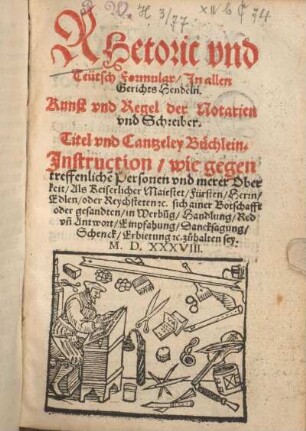 RHetoric vnd
Teütsch Formular / In allen
Gerichts Hendeln.
Kunst vnd Regel der Notarien
vnd Schreiber.
Titel vnd Cantzeley Büchlein.
Instruction / wie gegen
treffenliche Personen vnd merer Ober
keit / Als Keiserlicher Maiestet / Fürsten / Hern /
Edlen / oder Reychsteten ⁊c. sich ainer Botschafft
oder gesandten / in Werbũg / Handlung / Red
vñ Antwort / Empfahung / Dancksagung /
Schenck / Erbietung ⁊c. zůhalten sey.
M. D. XXXVIII.